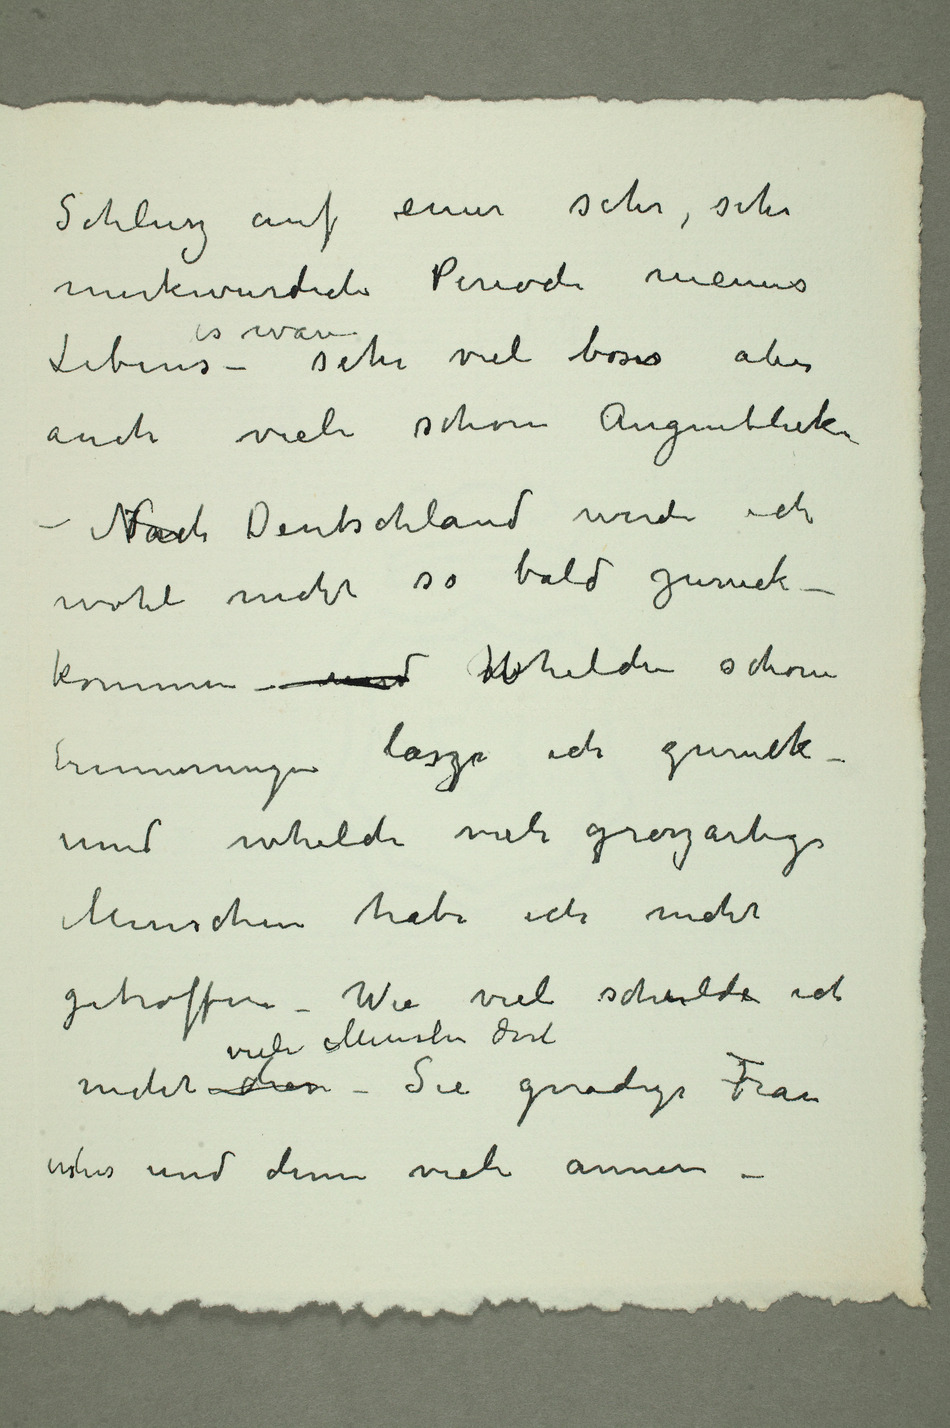 Schlusz auf einer sehr, sehr
merkwurdiche Periode meines
es waren
Lebens – sehr viel böses aber
auch viele schöne Augenblicke
– Nach Deutschland werde ich
wohl nicht so bald zuruck –
kommen – und Whelche schöne
Erinnerungen lasze ich zuruck –
und whelche viele groszartige
Menschen habe ich nicht
getroffen – Wie viel schulde ich
viele Menschen dort
nicht diesen – Sie gnadige Frau
erstens und dann viele annen –